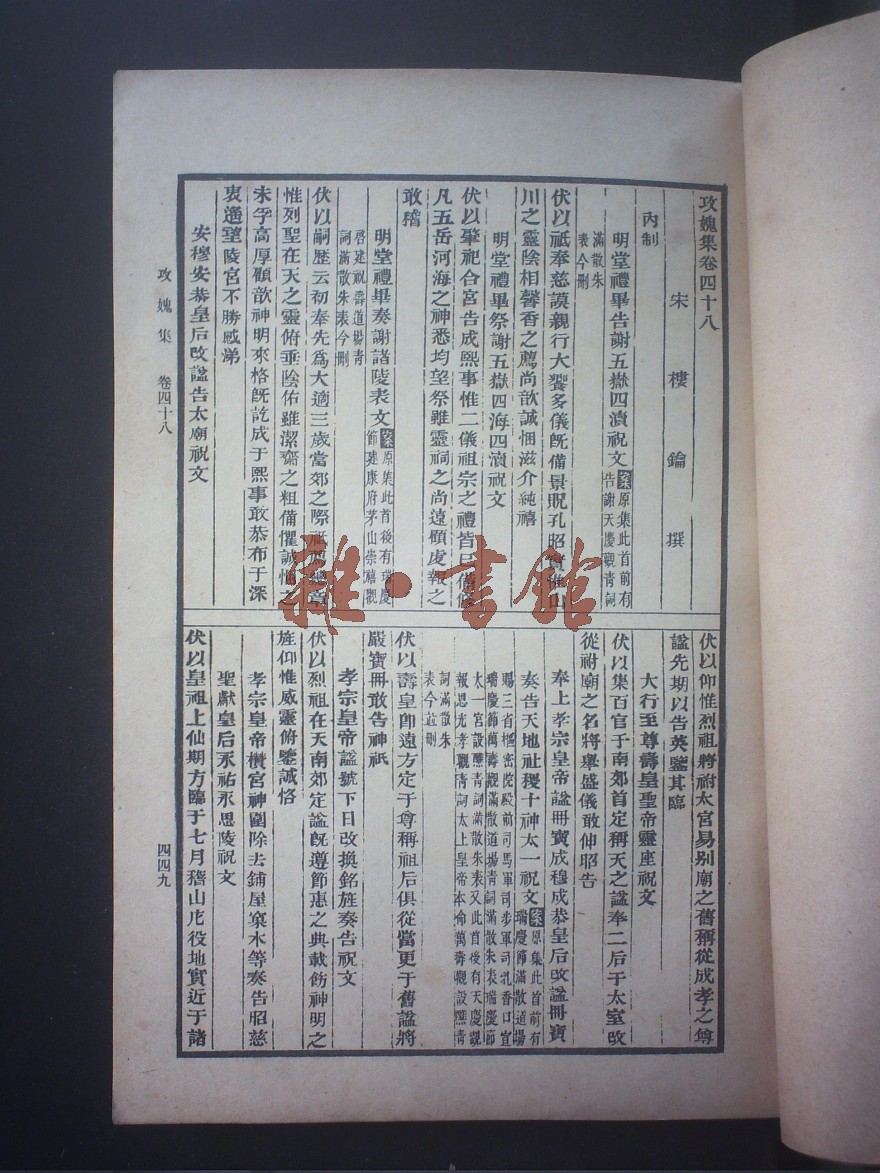 攻媿集卷四十八
宋 樓 鑰 撰
內制
明堂禮畢告謝五嶽四瀆祝文案原集此首前有告謝天慶觀靑詞
滿散朱表今刪
伏以祗奉慈謨親行大饗多儀旣備景貺孔昭實惟山
川之靈陰相馨香之薦尚歆誠悃滋介純禧
明堂禮畢祭謝五嶽四海四瀆祝文
伏以肇祀合宮告成熙事惟二儀祖宗之禮皆已備修
凡五岳河海之神悉均望祭雖靈祠之尚遠顧虔報之
敢稽
明堂禮畢奏謝諸陵表文案原集此首後有瑞慶節建康府茅山崇禧觀
啓建祝壽道場靑詞滿散朱表今刪
伏以嗣歷云初奉先爲大適三歲當郊之際祗 總章
惟列聖在天之靈俯垂陰佑雖潔齋之粗備懼誠 之
未孚高厚顧歆神明來格旣訖成于熙事敢恭布于深
衷遙望陵宮不勝感涕
安穆安恭皇后改諡告太廟祝文
伏以仰惟烈祖將祔太宮易別廟之舊稱從成孝之尊
諡先期以告英鑒其臨
大行至尊壽皇聖帝靈座祝文
伏以集百官于南郊首定稱天之諡奉二后于太室改
從祔廟之名將舉盛儀敢伸昭告
奉上孝宗皇帝諡冊寶成穆成恭皇后改諡冊寶
奏告天地社稷十神太一祝文案原集此首前有瑞慶節滿散道場
賜三省樞密院殿前司馬軍司步軍司乳香口宣
瑞慶節萬壽觀滿散道場靑詞滿散朱表瑞慶節
太一宮設醮靑詞滿散朱表又此首後有天慶觀
報恩光孝觀靑詞太上皇帝本命萬壽觀設醮靑
詞滿散朱
表今並刪
伏以壽皇卽遠方定于尊稱祖后俱從當更于舊諡將
嚴寶冊敢告神祇
孝宗皇帝諡號下日改換銘旌奏告祝文
伏以烈祖在天南郊定諡旣遵節惠之典載飭神明之
旌仰惟威靈俯鑒誠恪
孝宗皇帝欑宮神圍除去鋪屋窠木等奏告昭慈
聖獻皇后永祐永思陵祝文
伏以皇祖上仙期方臨于七月稽山庀役地實近于諸
攻媿集 卷四十八
四四九
雜·書館